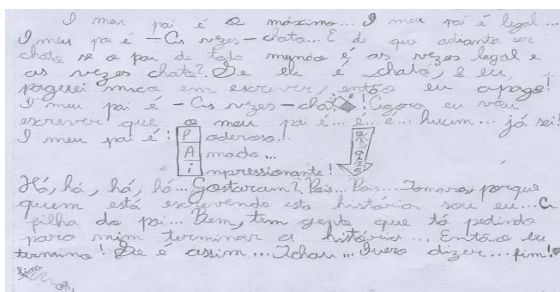 O meu pai é o máximo... O meu pai é legal...
O meu pai é - Às vezes - chato... E de que adianta ser
chato se o pai de todo mundo é as vezes legal e
as vezes chato?. Se ele é chato, e eu,
paguei mico em escrever, então eu apago!
O meu pai é - Às vezes - chato! Agora eu vou
escrever que o meu pai é... é... é... huum... já sei!
O meu pai é: Poderoso!
Amado...
impressionante!
Há, há, há, há... Gostaram? Pois... Pois... Tomara, porque
quem está escrevendo esta história sou eu... A
filha do pai... Bem, tem gente que tá pedindo
para mim terminar a história... Então eu
termino! Ele é assim... Tchau... Quero dizer... fim!